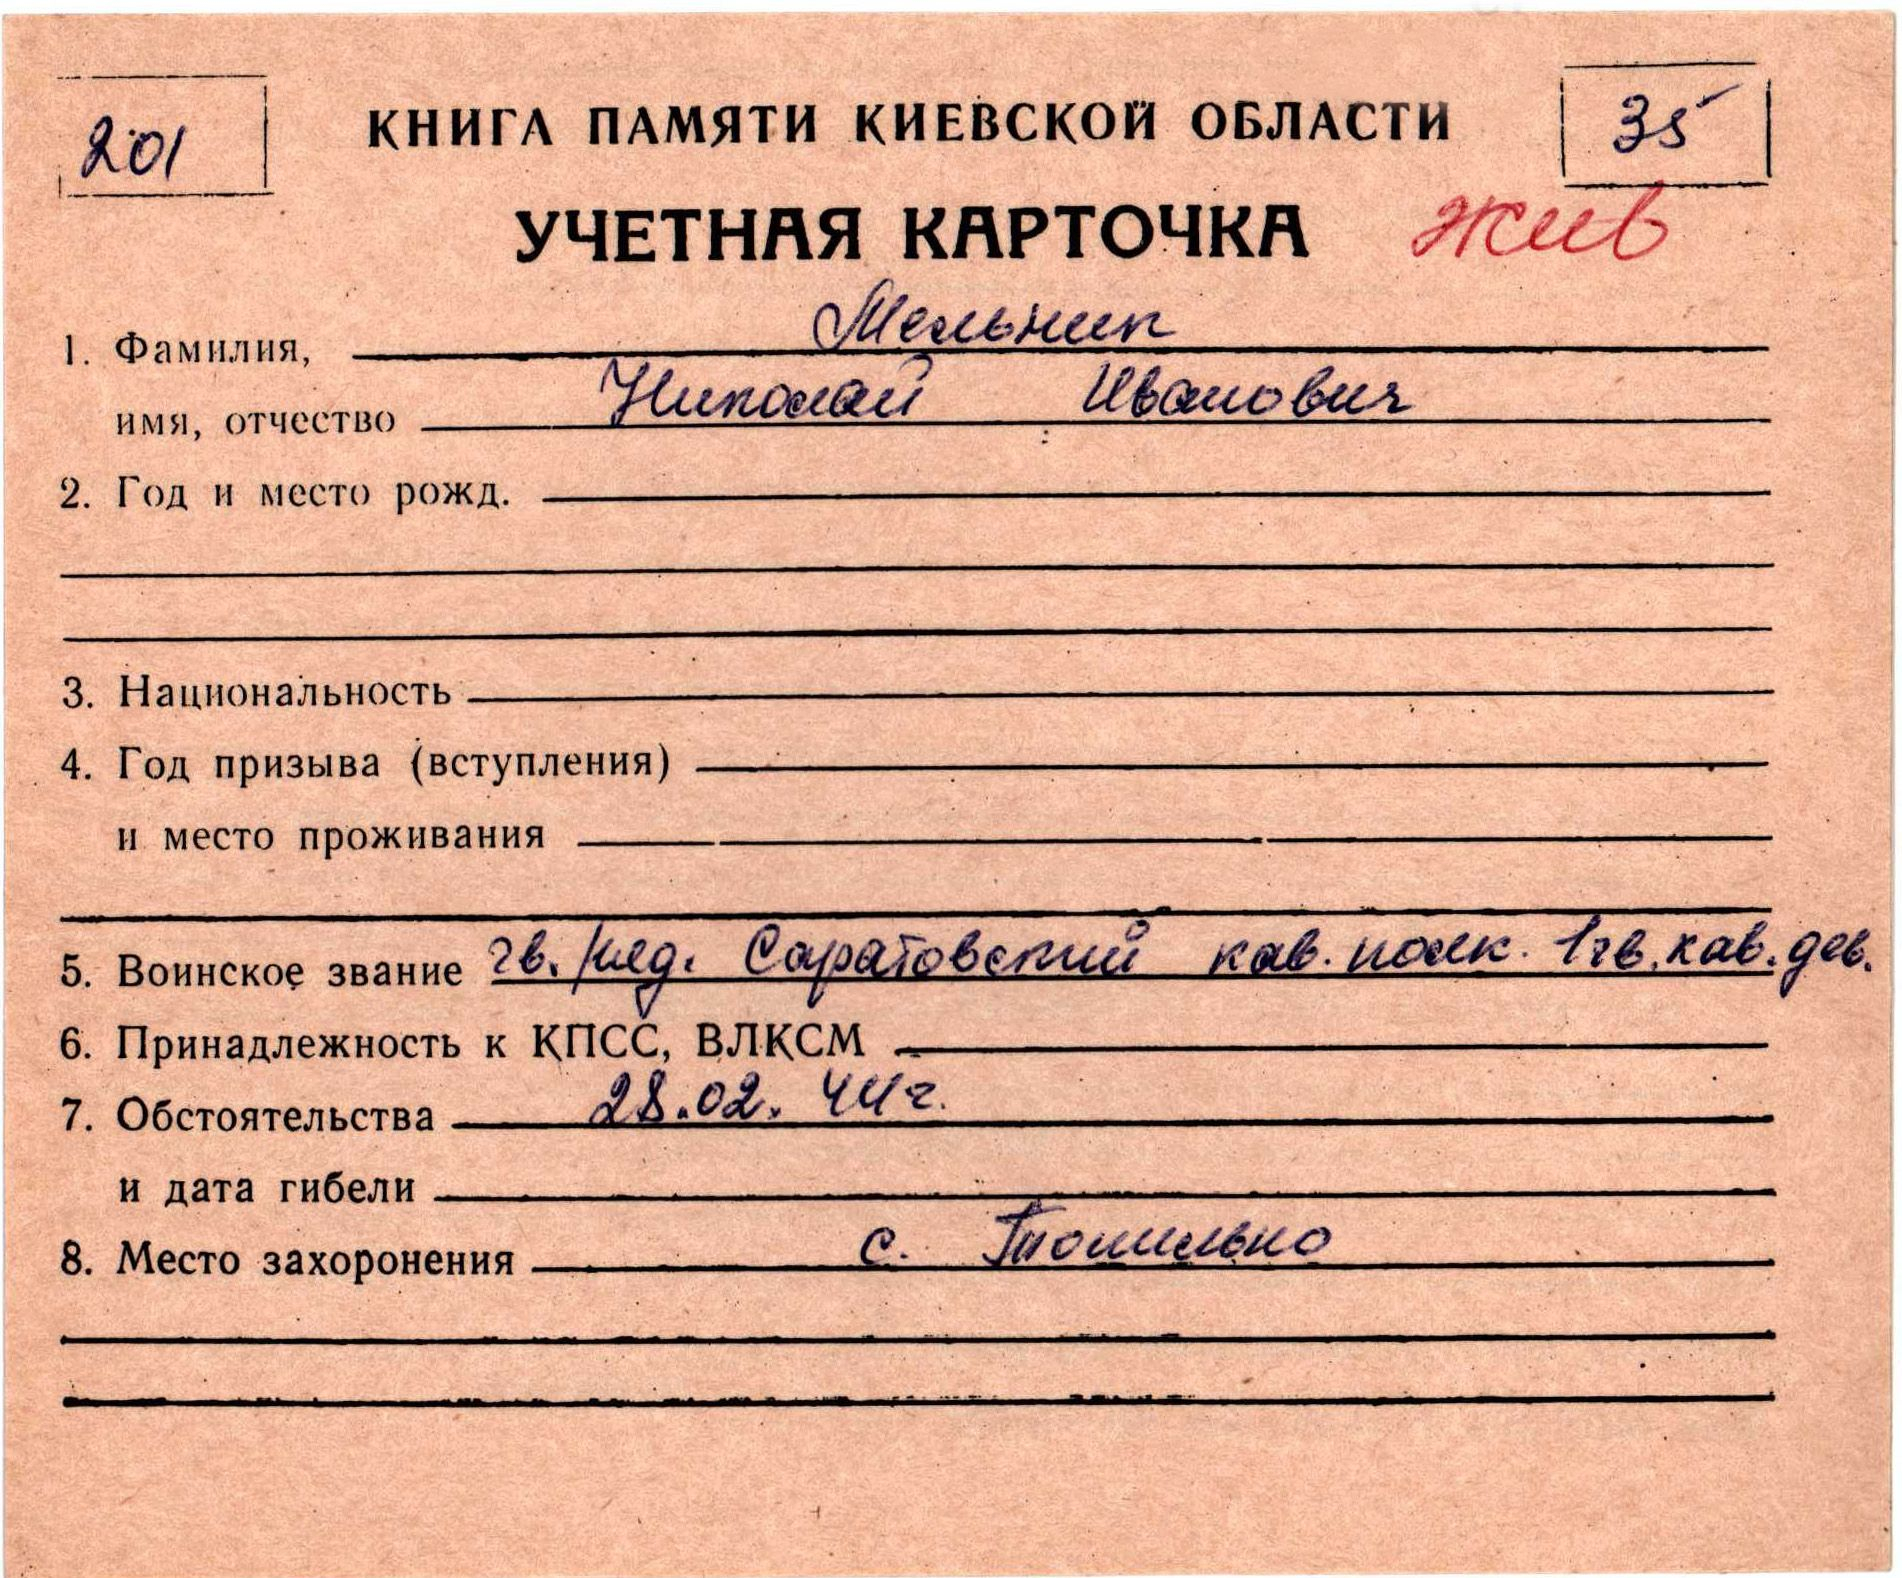 201
КНИГА ПАМЯТИ КИЕВСКОЙ ОБЛАСТИ
35
УЧЕТНАЯ КАРТОЧКА
жив
1. Фамилия, Мельник
имя, отчество Николай Иванович
2. Год и место рожд.
3. Национальность
4. Год призыва (вступления)
и место проживания
5. Воинское звание гв. Саратовский кав. полк. 1 гв. кав. див.
6. Принадлежность к КПСС, ВЛКСМ
7. Обстоятельства 28.02.44г.
и дата гибели
8. Место захоронения с.